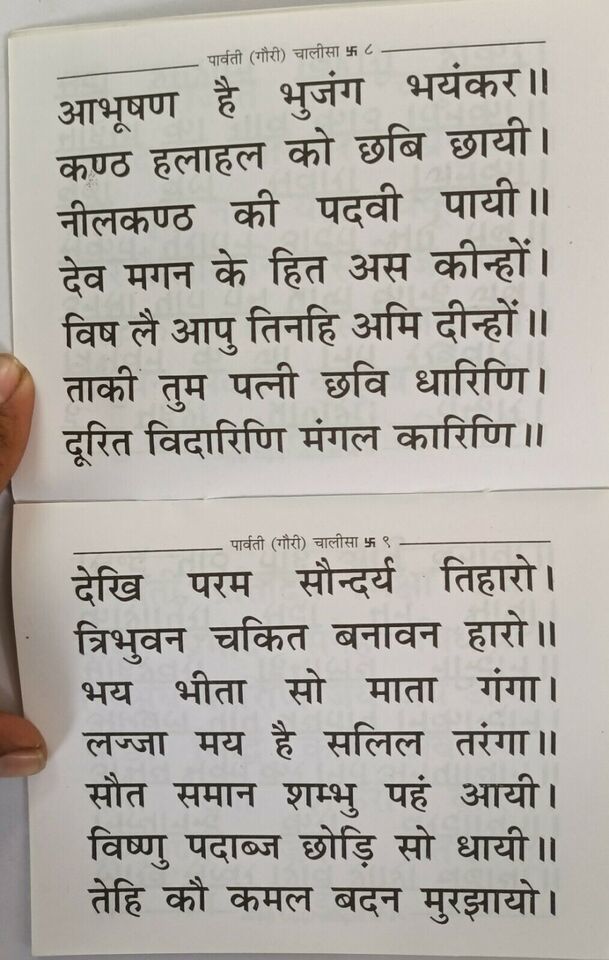 पार्वती (गौरी) चालीसा 卐 ८
आभूषण है भुजंग भयंकर॥
कण्ठ हलाहल को छबि छायी।
नीलकण्ठ की पदवी पायी॥
देव मगन के हित अस कीन्हों।
विष लै आपु तिनहि अमि दीन्हों॥
ताकी तुम पत्नी छवि धारिणि।
दूरित विदारिणि मंगल कारिणि॥
पार्वती (गौरी) चालीसा 卐 ९
देखि परम सौन्दर्य तिहारो।
त्रिभुवन चकित बनावन हारो॥
भय भीता सो माता गंगा।
लज्जा मय है सलिल तरंगा॥
सौत समान शम्भु पहं आयी।
विष्णु पदाब्ज छोड़ि सो धायी॥
तेहि कौ कमल बदन मुरझायो।